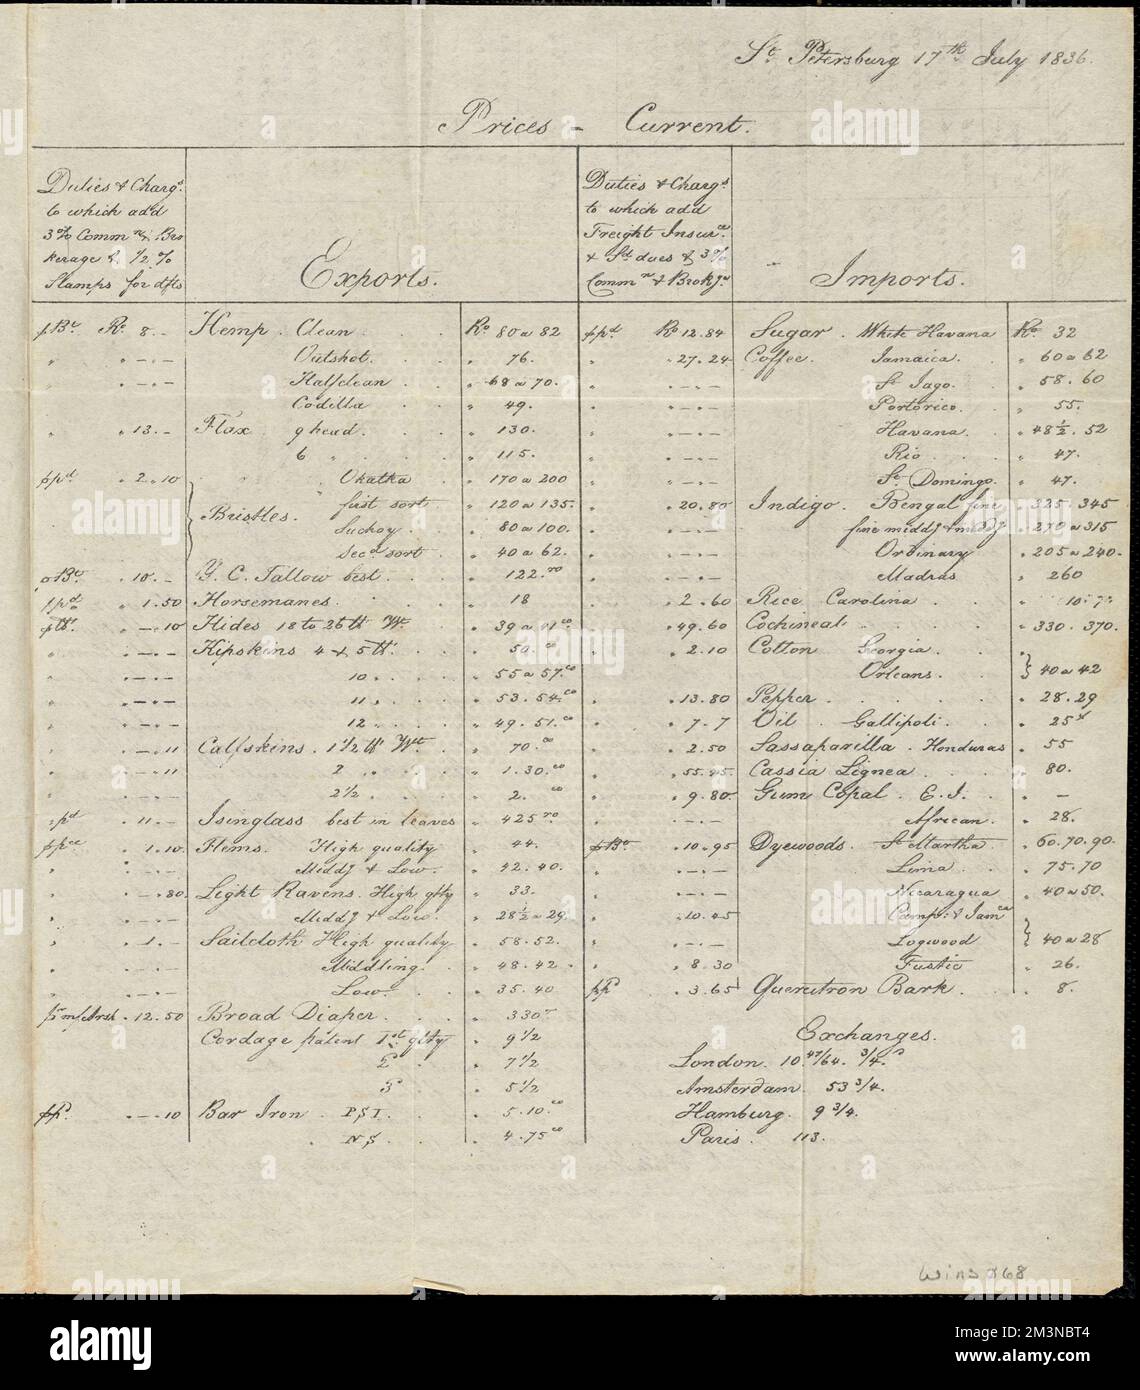 St. Petersburg 17th July 1836.
Prices - Current.
Duties & Chargs.
to which add
3% Commn & Bro
kerage & 1/2 %
Stamps for dfts
Exports.
Duties & Chargs
to which add
Freight Insurce
& Sd dues & 3%
Commn & Brokge
Imports.
Ro. 8. - Hemp. Clean Ro 80 a 82
" " - . - Outshot. " 76.
" " - . - Halfclean " 68 a 70.
" " - . - Codilla " 49.
" " 13. - Flax 9 head. " 130.
6 " " 115.
ppd " 2.10 Bristles. Okatka " 170 a 200
first sort " 120 a 135.
Suchoy " 80 a 100.
Secd sort " 40 a 62.
" 10. - Y. C. Tallow best " 122.
ppd " 1.50 Horsemanes. " 18
" - . 10 Hides 18 to 26 lb Wt.
" " - . - Kipskins 4 & 5 lb.
" " - . - 10 " 55 a 57.co
" " - . - 11 " 53.54.co
" " - . - 12 " 49.51.co
" " - . 11 Calfskins. 1 1/2 lb Wt. " 70.co
" " - . 11 2 " 1.30.co
" " - . - 2 1/2 " 2. co
ppd " 11. - Isinglass best in leaves " 425
" 1.10. Flems. High quality " 44.
" " - . - Middg & Low. " 42.40.
" " - . 80. Light Ravens. High qlty " 33.
" " - . - Middg & Low. " 28 1/2 a 29.
" " 1. - Sailcloth High quality " 58.52.
" " - . - Middling. " 48.42.
" " - . - Low. " 35.40
" 12.50 Broad Diaper " 330
Cordage patent 1st qlty " 9 1/2
2 " 7 1/2
3 " 5 1/2
pP. " - . 10 Bar Iron. PSI. " 5.10.co
NS. " 4.75co
ppd Ro 12.84 Sugar. White Havana Ro 32
" " 27.24 Coffee. Jamaica. " 60 a 62
" " - . - St Jago. " 58.60
" " - . - Portorico. " 55.
" " - . - Havana. " 48 1/2. 52
" " - . - Rio " 47.
" " - . - St. Domingo. " 47.
" " 20.80 Indigo. Bengal fine " 325.345
" " - . - fine middg & middg " 270 a 315
" " - . - Ordinary " 205 a 240.
" " - . - Madras " 260
" " 2.60 Rice Carolina
" " 49.60 Cochineal. " 330.370.
" " 2.10 Cotton Georgia "
Orleans. } 40 a 42
" " 13.80 Pepper " 28.29
" " 7.7 Oil. Gallipoli. " 25
" " 2.50 Sassaparilla. Honduras " 55
" " 55.45. Cassia Lignea " 80.
" " 9.80 Gum Copal. E.I. " -
" " - . - African. " 28.
pBo " 10.95 Dyewoods. St Martha " 60.70.90.
" " - . - Lima " 75.70
" " - . - Nicaragua " 40 a 50.
" " 10.45 Camp: & Jamca
" " - . - Logwood } 40 a 28
" " 8.30 Fustic " 26.
pP " 3.65 Quercitron Bark " 8.
Exchanges.
London. 10.47/64. 3/4.
Amsterdam. 53 3/4.
Hamburg. 9 3/4.
Paris. 113.
alamy
Image ID: 2M3NBT4
www.alamy.com